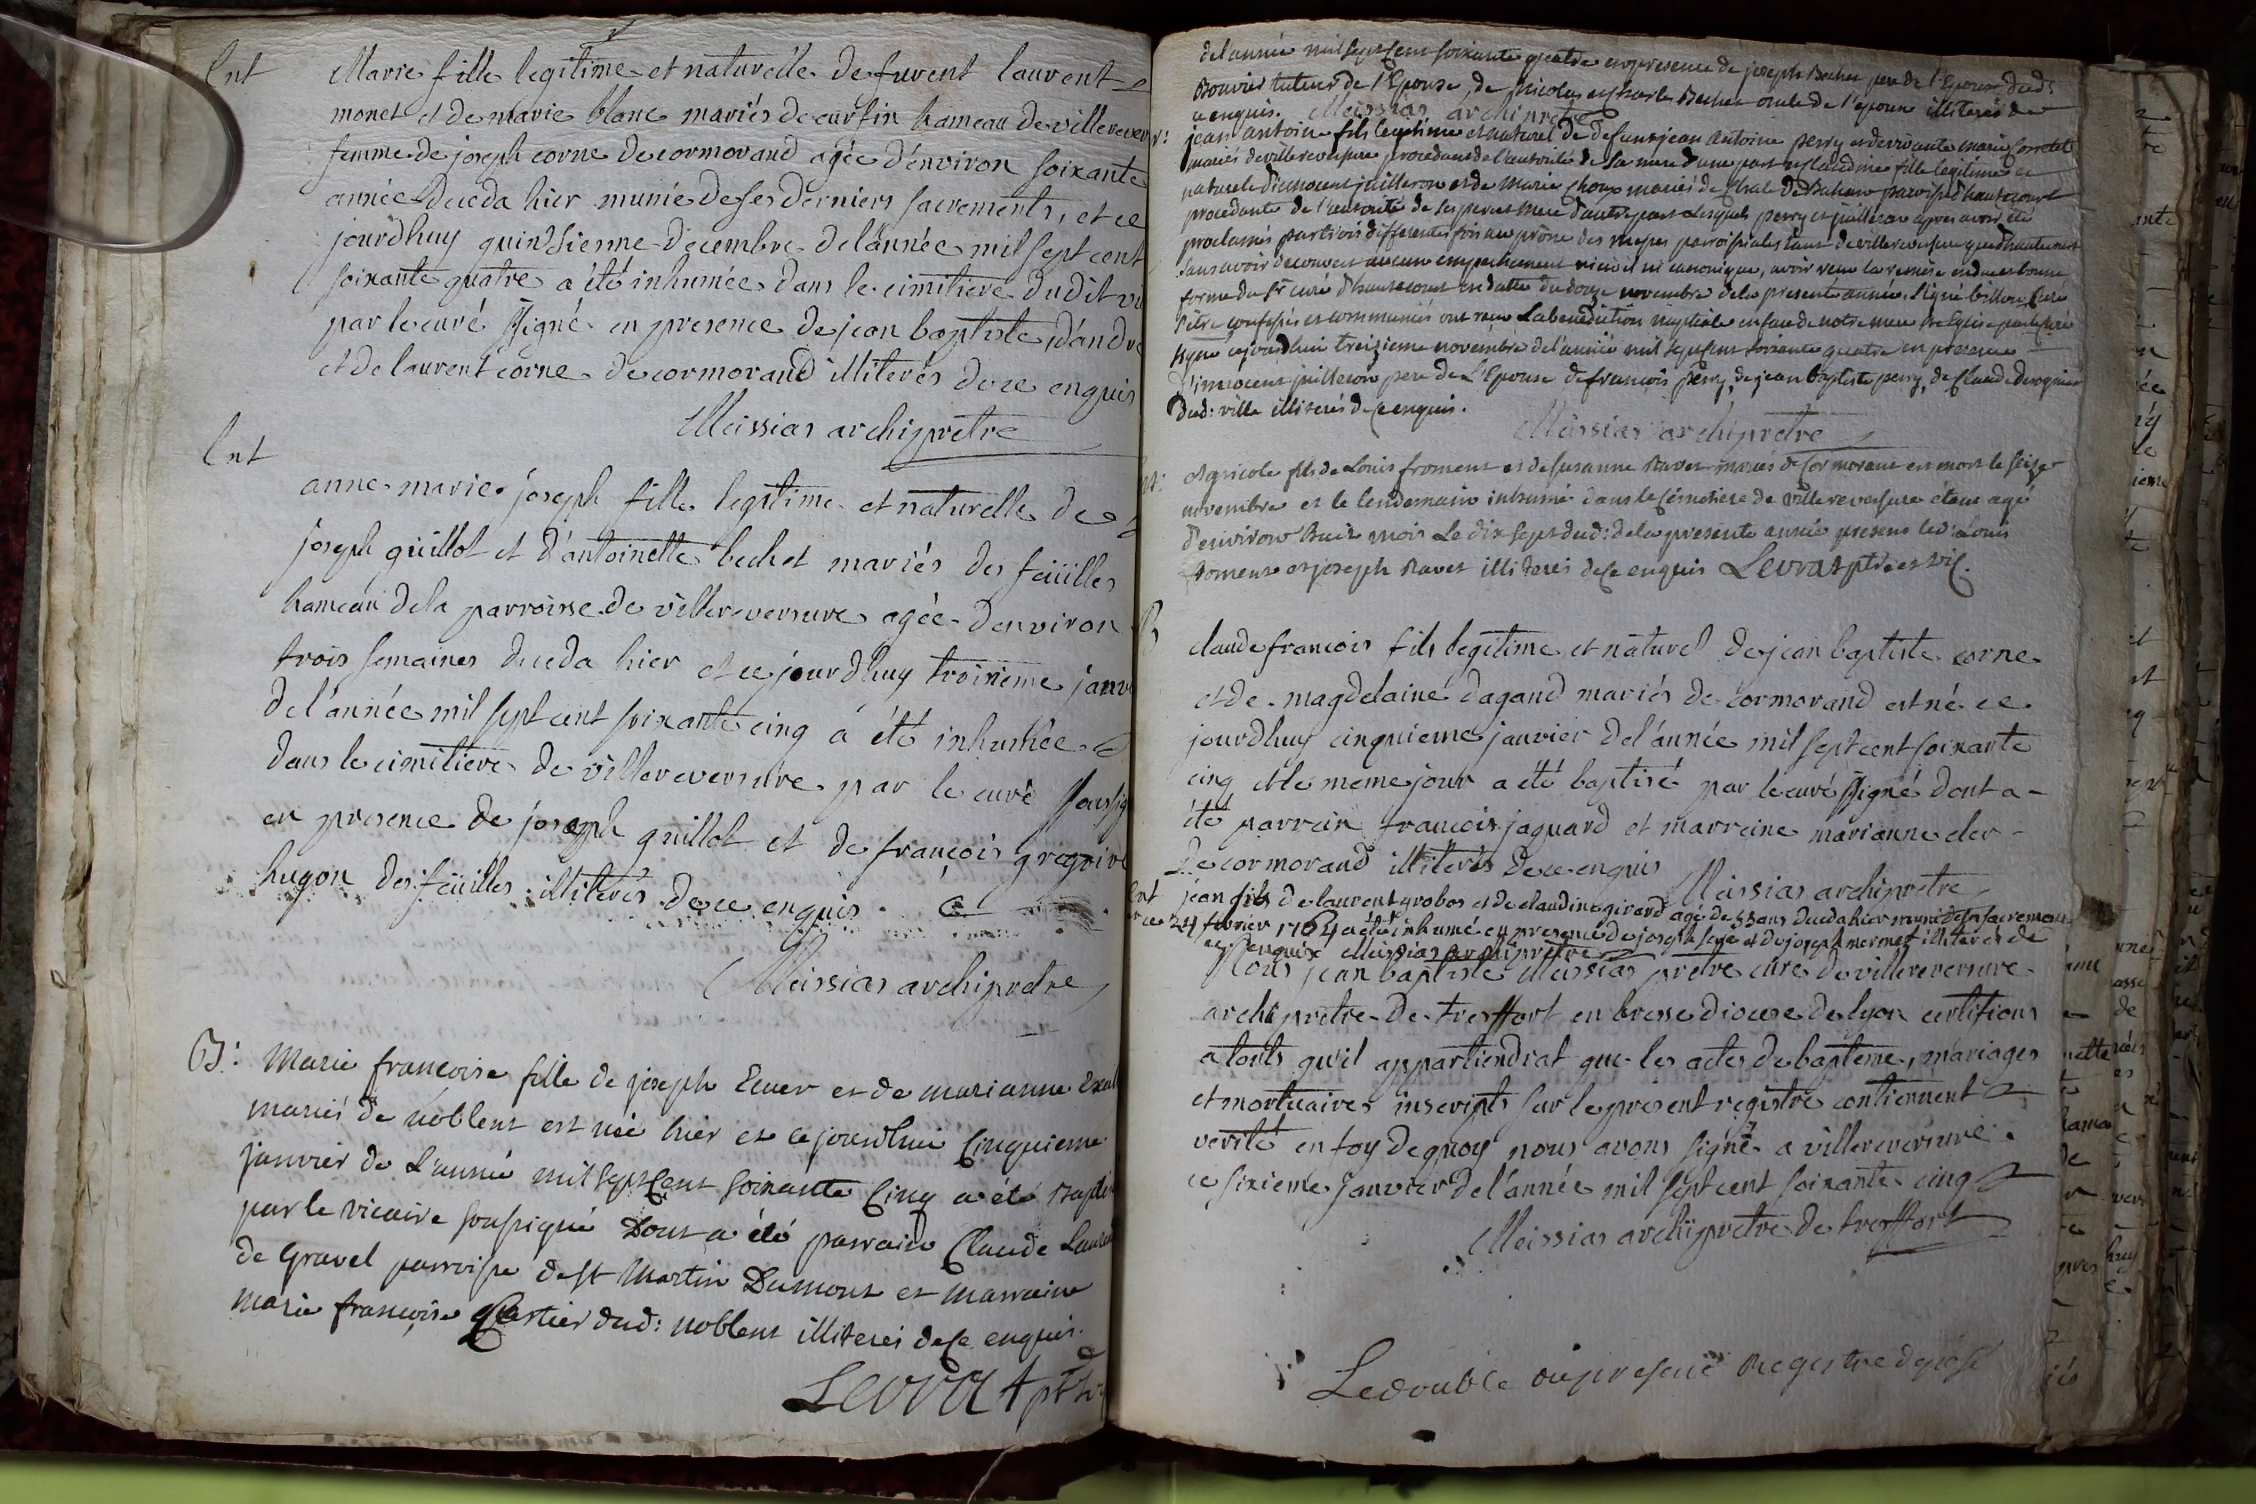 Ent
Marie fille legitime et naturelle de furent laurent
monet et de marie blanc mariés de curfin hameau de villerever
femme de joseph corne de cormorand agée d'environ soixante
année deceda hier munie de ses derniers sacrements, et ce
jourdhuy quinsienne decembre de l'année mil sept cent
soixante quatre a été inhumée dans le cimitiere dudit vi
par le curé ssigné en presence de jean baptiste, d'andré
et de laurent corne de cormorand illiterés de ce enquis
Meissias archiprêtre
Ent
anne marie joseph fille legitime et naturelle de
joseph guillot et d'antoinette bechet mariés des feüilles
hameau de la parroisse de villereversure agée denviron
trois semaines deceda hier et ce jourdhuy troisieme janvi
de l'année mil sept cent soixante cinq a été inhumée
dans le cimitiere de villereversure par le curé soussig
en presence de joseph guillot et de françois gregoire
hugon des feüilles illiterés de ce enquis.
Meissias archiprêtre
B:
Marie francoise fille de joseph Ecuer et de marianne
mariés de noblens est née hier et ce jourdhui Cinquieme
janvier de L'année mil sept Cent soixante Cinq a été Bapti
par le vicaire soussigné Dont a été parrain Claude
de gravel parroisse de st Martin Dumont et marraine
marie françoise quartier dud: noblens illiterés de Ce enquis.
Levrat ptre
de l'année mil sept Cent soixante quatre en presence de joseph Bechet pere de l'Epoux
Bouvier tuteur de l'Epouse, de Nicolas et Charle Bechet oncle de l'epoux illiterés de
ce enquis. Meissias archiprêtre
jean antoine fils legitime et naturel de defunt jean Antoine perry et de vivante marie
mariés de villereversure procedant de l'autorité de sa mere d'une part et Claudine fille legitime et
naturele d'innocent juilleron et de Marie Choux mariés de paroisse d'hautecourt
procedante de l'autorité de ses pere et mere d'autre part lesquels perry et juilleron apres avoir été
proclamés par trois differentes fois au prône des messes paroissiales tant de villereversure que d'hautecourt
sans avoir decouvert aucun empechement civil ni canonique, avoir veu la remise en due et bonne
forme du Sr curé d'hautecourt en datte du douze novembre de la presente année, signé billion Curé
s'être confessés et communiés ont reçu La benediction nuptiale en face de notre mere Ste Eglise par le Curé
ssigné cejourdhui treizieme novembre de l'année mil sept Cent soixante quatre en presence
d'innocent juilleron pere de L'Epouse de françois perry, de jean baptiste perry, de Claude
dud: ville illiterés de Ce enquis.
Meissias archiprêtre
Agricole fils de Louis froment et de susanne Ravet mariés de Cormorand est mort le seize
novembre et le lendemain inhumé dans le Cémetiere de villereversure étant agé
d'environ huit mois Le dix sept dud: de la presente année presens led: Louis
froment et joseph Ravet illiterés de Ce enquis Levrat ptre et vic.
B
claude francois fils legitime et naturel de jean baptiste corne
et de magdelaine dagand mariés de cormorand est né ce
jourdhuy cinquieme janvier de l'année mil sept cent soixante
cinq et le meme jour a été baptisé par le curé ssigné dont a
été parrein francois jaquard et marreine marianne
de cormorand illiterés de ce enquis Meissias archiprêtre
Ent jean fils de laurent grobos et de claudine girard agé de 53 ans deceda hier muni de ses sacremens
ce 24 fevrier 1764 a été inhumé en presence de joseph et de joseph mermet illiterés de
ce enquis Meissias archiprêtre
Nous jean baptiste Meissias prêtre curé de villereversure
archiprêtre de treffort en bresse diocese de lyon certifions
a touts qu'il appartiendrat que les actes de baptême, mariages
et mortuaires inscripts sur le present registre contiennent
verité en foy de quoy nous avons signé a villereversure
ce sixieme janvier de l'année mil sept cent soixante cinq
Meissias archiprêtre de treffort
Le double du present Registre deposé